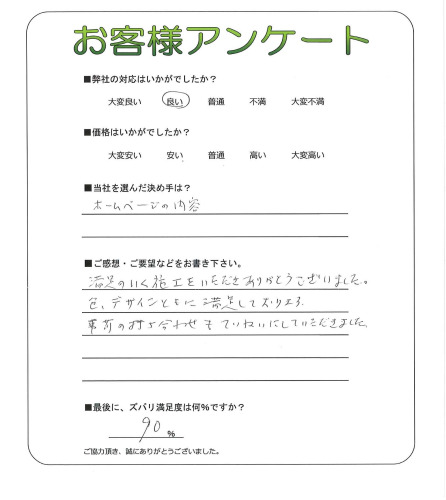 お客様アンケート
■弊社の対応はいかがでしたか?
大変良い 良い 普通 不満 大変不満
■価格はいかがでしたか?
大変安い 安い 普通 高い 大変高い
■当社を選んだ決め手は?
ホームページの内容
■ご感想・ご要望などをお書き下さい。
満足のいく施工をいただきありがとうございました。
色、デザインともに満足しております。
事前の打ち合わせもていねいにしていただきました。
■最後に、ズバリ満足度は何%ですか?
90 %
ご協力頂き、誠にありがとうございました。